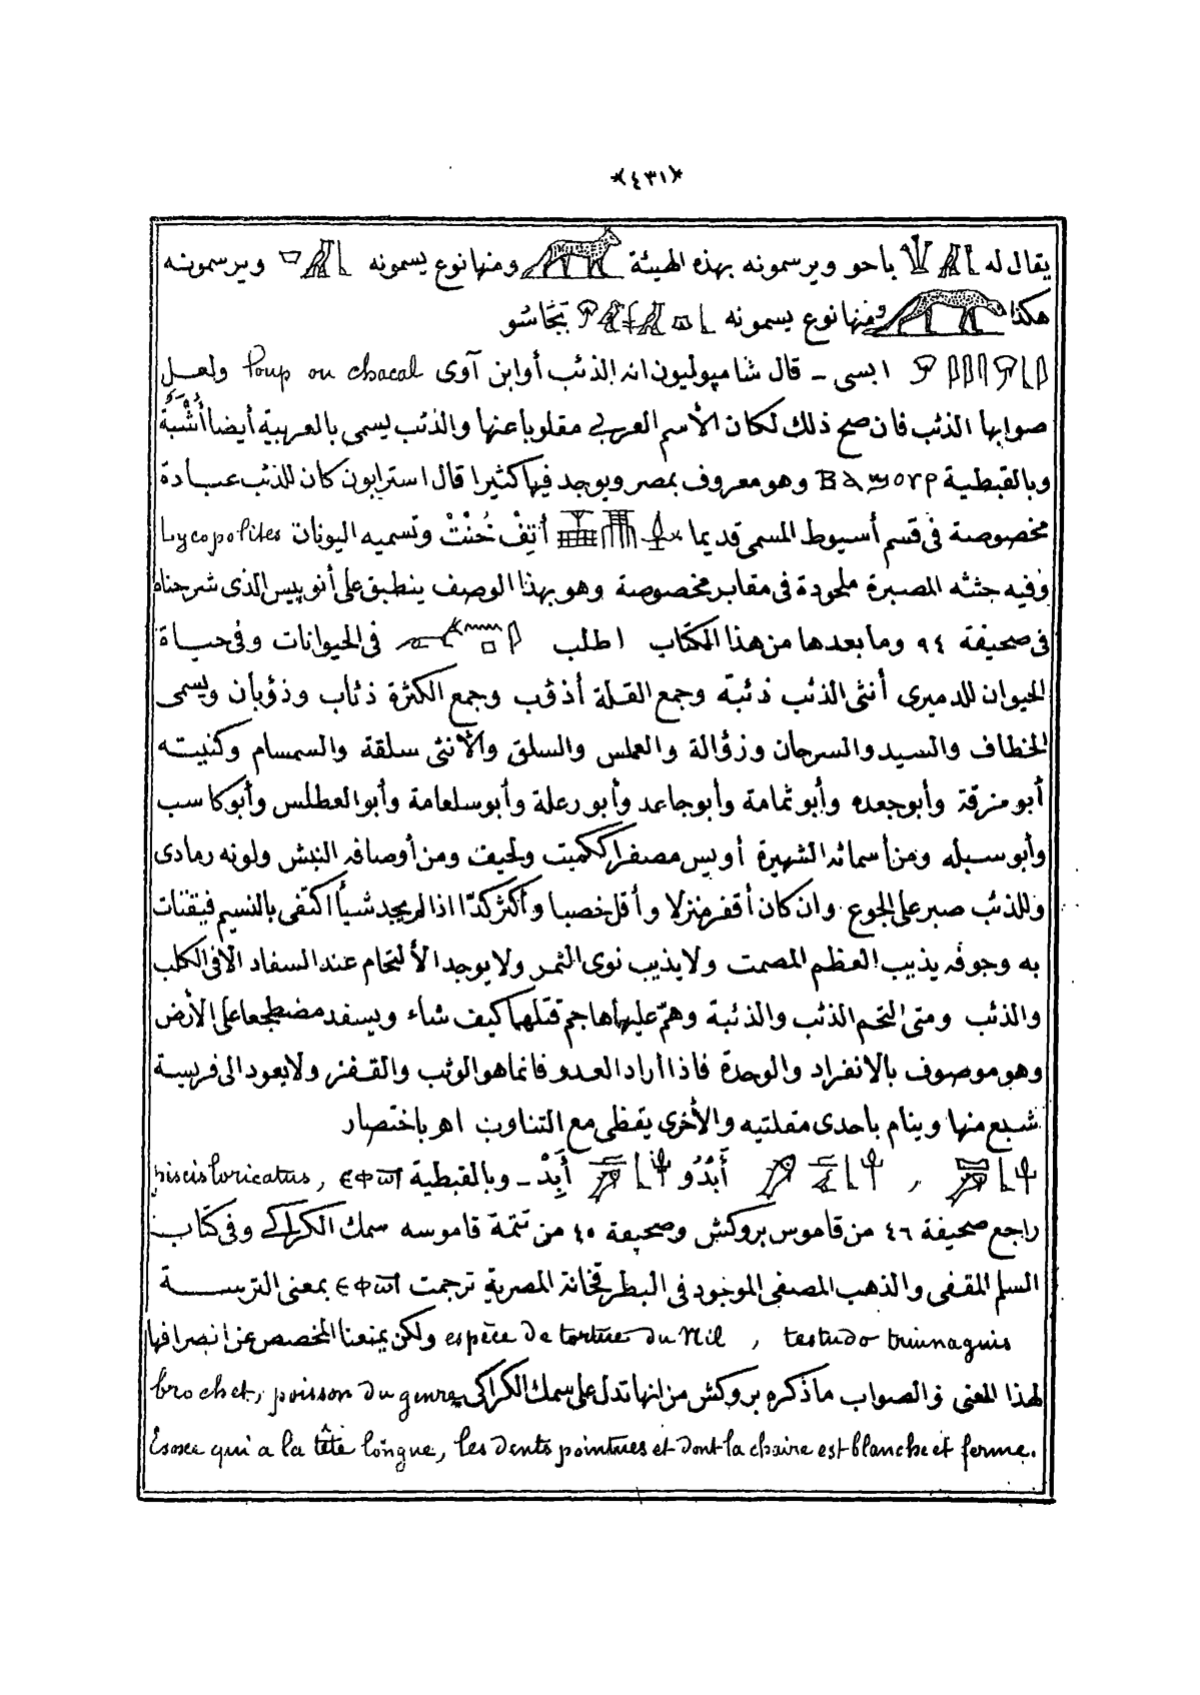 ﴿٤٣١﴾
يقال له باحو ويرسمونه بهذه الهيئة ومنها نوع يسمونه ويرسمونه
هكذا ومنها نوع يسمونه بَجَّاسُو
ابسى ـ قال شامپوليون انه الذئب أو ابن آوى loup ou chacal ولعل
صوابها الذئب فان صح ذلك لكان الأسم العربى مقلوبا عنها والذئب يسمى بالعربية أيضا أُشْبَةُ
وبالقبطية ⲃⲁϣⲟⲣ وهو معروف بمصر ويوجد فيها كثيرا قال استرابون كان للذئب عبادة
مخصوصة فى قسم أسيوط المسمى قديما أتِفْ خُنْتْ وتسميه اليونان Lycopolites
وفيه جثثه المصبرة ملحودة فى مقابر مخصوصة وهو بهذا الوصف ينطبق على أنوبيس الذى شرحناه
فى صحيفة ٩٤ وما بعدها من هذا الكتاب اطلب فى الحيوانات وفى حياة
الحيوان للدميرى أنثى الذئب ذئبة وجمع القلة أذؤب وجمع الكثرة ذئاب وذؤبان ويسمى
الخطاف والسيد والسرحان وزؤالة والعملس والسلق والأنثى سلقة والسمسام وكنيته
أبو مزقة وأبو جعده وأبو ثمامة وأبو جاعد وأبو رعلة وأبو سلعامة وأبو العطلس وأبو كاسب
وأبو سبله ومن أسمائه الشهيرة أويس مصغرا ككميت ولحيف ومن أوصافه النبش ولونه رمادى
وللذئب صبر على الجوع وان كان أقفر منزلا وأقل خصبا وأكثر كدّا اذا لم يجد شيأ اكتفى بالنسيم فيقتات
به وجوفه يذيب العظم المصمت ولا يذيب نوى الثمر ولا يوجد الألتحام عند السفاد الا فى الكلب
والذئب ومتى التحم الذئب والذئبة وهمّ عليهما هاجم قتلهما كيف شاء ويسفد مضطجعا على الأرض
وهو موصوف بالانفراد والوحدة فاذا أراد العدو فانما هو الوثب والقفز ولا يعود الى فريسة
شبع منها وينام باحدى مقلتيه والأخرى يقظى مع التناوب اهـ باختصار
، أَبْدُو أَبِدْ ـ وبالقبطية ⲉⲫⲱⲧ , piscis loricatus
راجع صحيفة ٤٦ من قاموس بروكش وصحيفة ٤٠ من تتمة قاموسه سمك الكراكى وفى كتاب
السلم المقفى والذهب المصفى الموجود فى البطرقخانة المصرية ترجمت ⲉⲫⲱⲧ بمعنى الترسة
espèce de tortue du Nil , testudo triunaguis ولكن يمنعنا المخصص عن انصرافها
لهذا المعنى والصواب ما ذكره بروكش من انها تدل على سمك الكراكى brochet, poisson du genre
Esoxe qui a la tête longue, les dents pointues et dont la chaire est blanche et ferme.